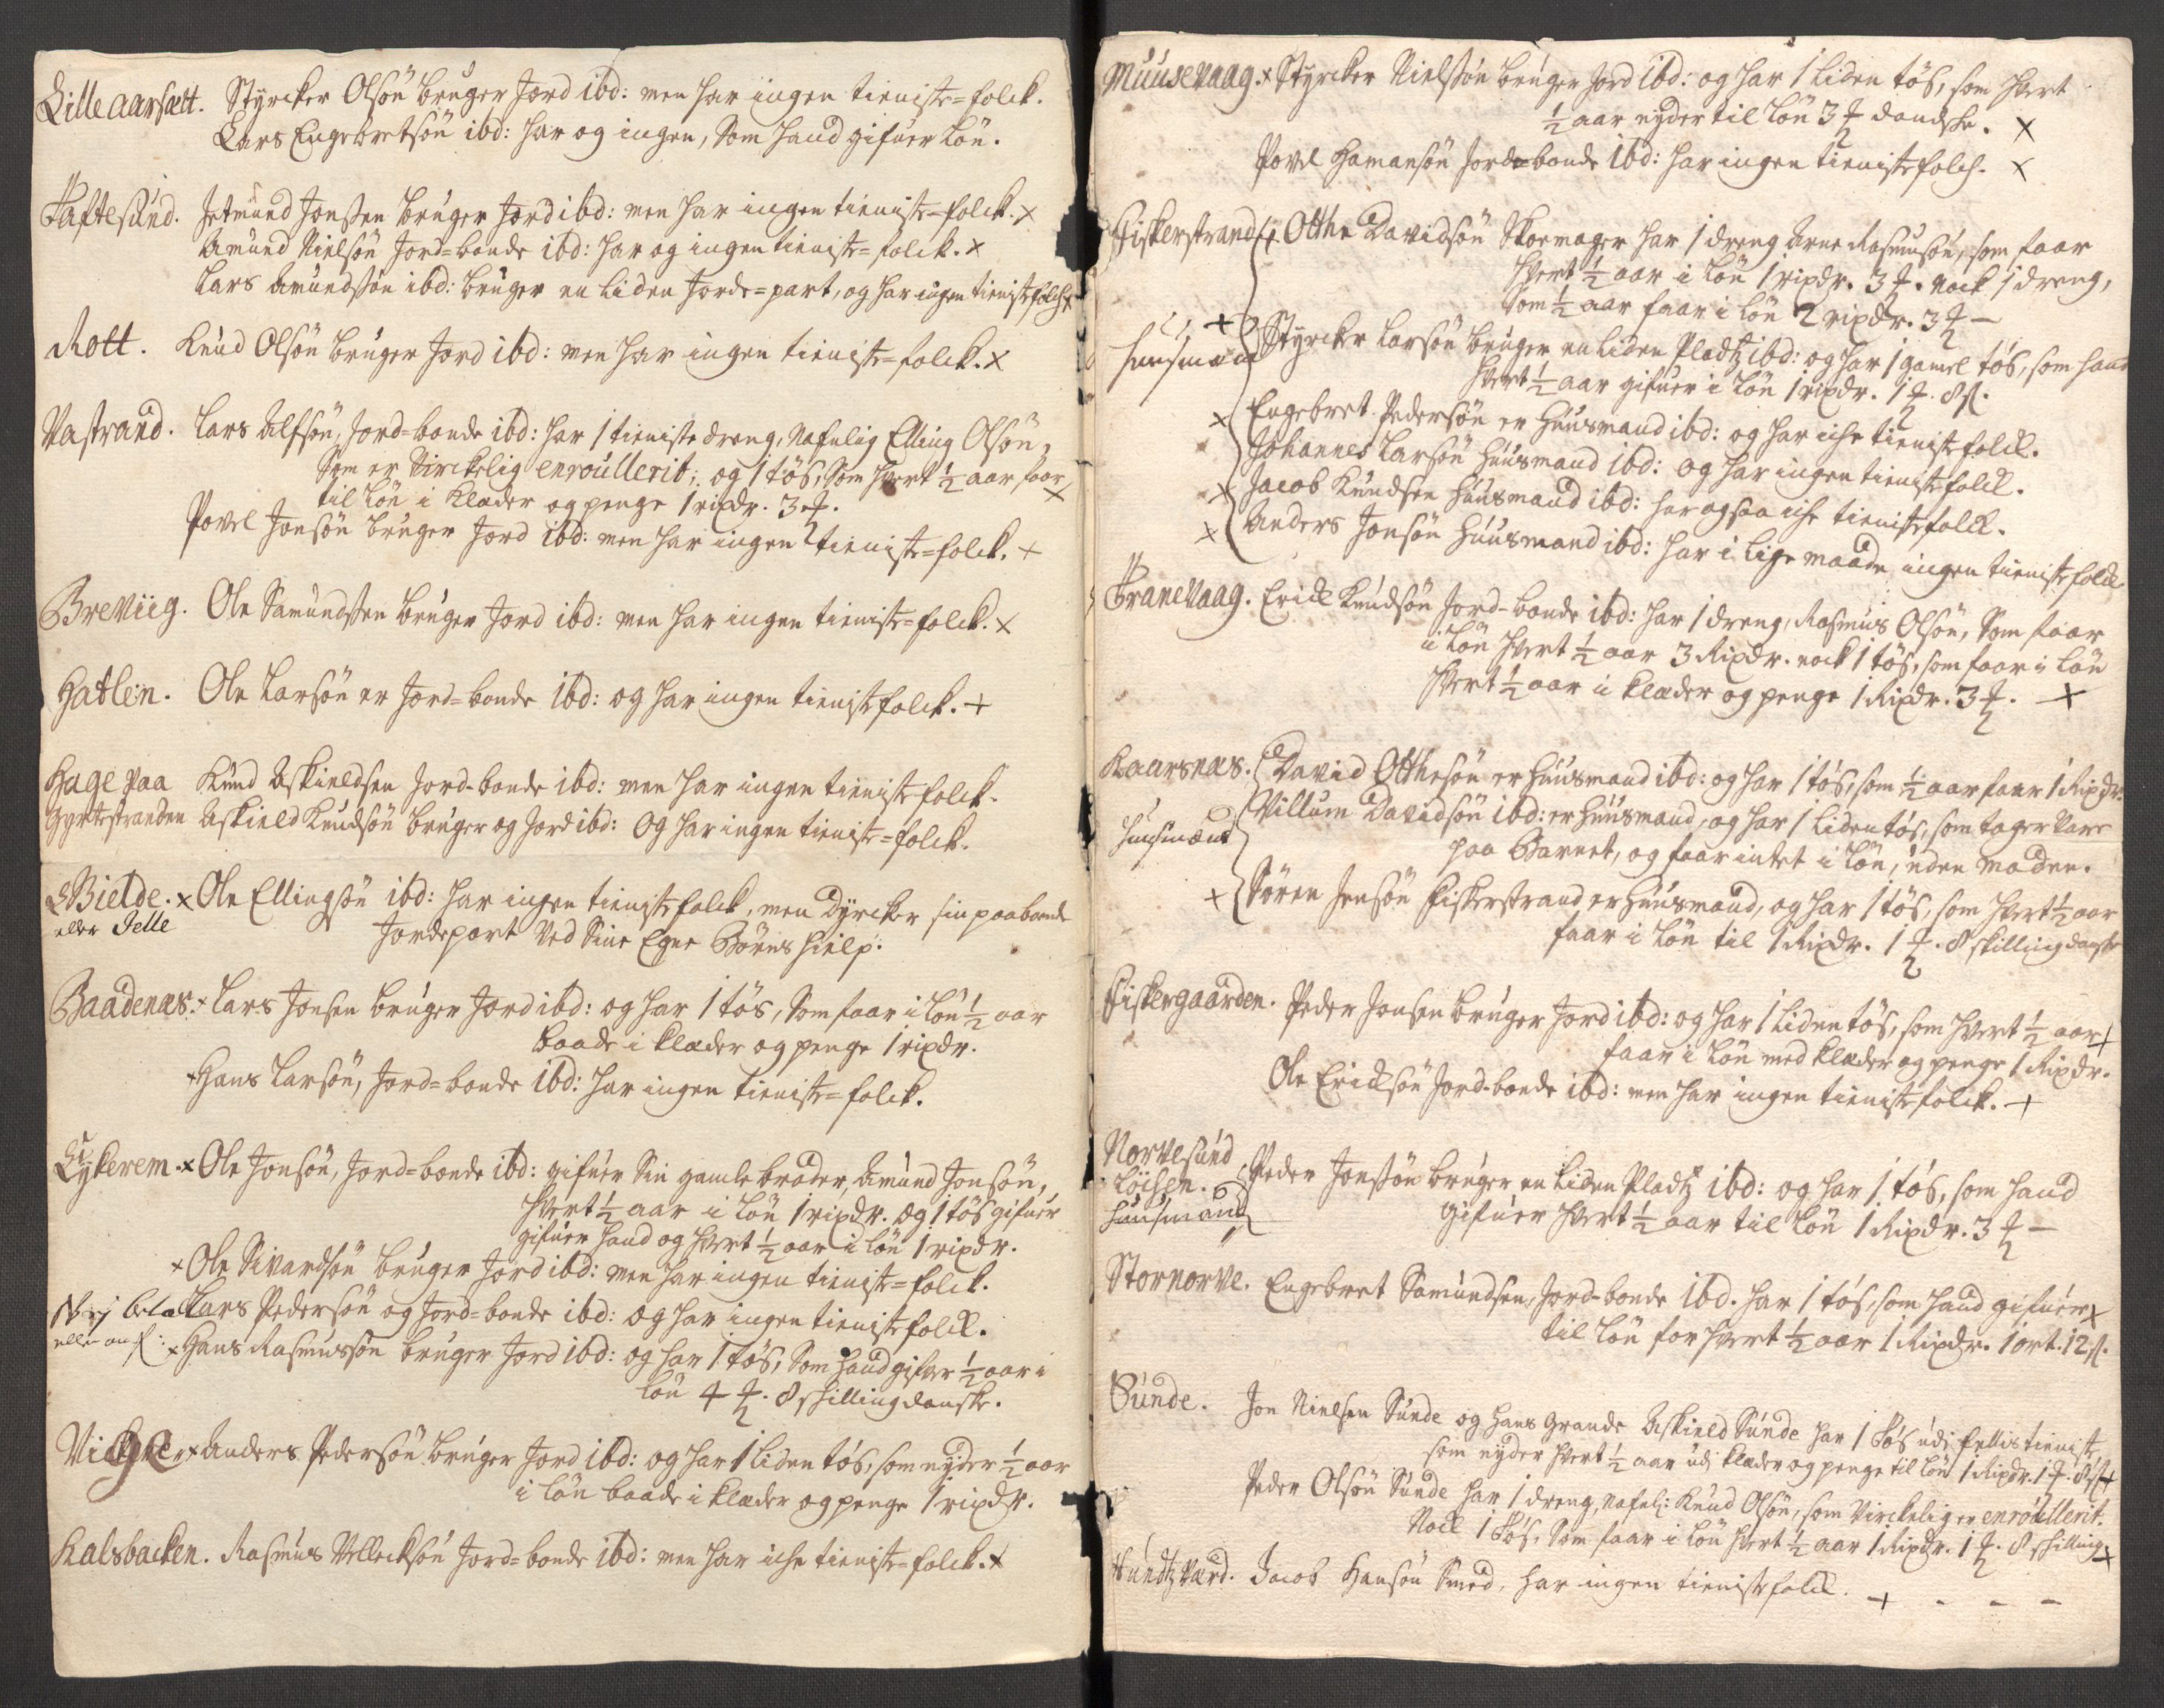 Lille aarsætt. Styrcker Olsön bruger Jord ibd: men har ingen tieniste=folck.
Lars Engebretsön ibd: har og ingen, Som hand gifuer lön.
Taftesund. Jetmund Jonssen bruger Jord ibd: men har ingen tieniste=folck. x
Amund Nielsön Jord=bonde ibd: har og ingen tieniste=folck. x
Lars Amundssön ibd: bruger en liden Jorde=part, og har ingen tienistefolch x
Rott. Knud Olsön bruger Jord ibd: men har ingen tieniste=folck. x
Vastrand. Lars Alfsön, Jord=bonde ibd: har 1 tieniste dreng, Nafnlig Elling Olsön,
Som er Virckelig enroullerit; og 1 tös, Som hvert ½ aar faar
til lön i klæder og penge 1 rixdr. 3 ₰. x
Povel Jonsön bruger Jord ibd: men har ingen tieniste=folck. +
Breviig. Ole Samundssen bruger Jord ibd: men har ingen tieniste=folck. x
Hatlen. Ole Larsön er Jord=bonde ibd: og har ingen tienistefolck. +
Hage paa Knud Askieldsen Jord-bonde ibd: men har ingen tienistefolck.
Gyrtestranden Askield Knudsön bruger og Jord ibd: og har ingen tieniste=folck.
Bielde. x Ole Ellingsön ibd: har ingen tienistefolck, men dyrcker sin paaboende
eller Jelle Jordepart Ved Sine Egne Börns hielp.
Baadenæs. x Lars Jonsen bruger Jord ibd: og har 1 tös, Som faar i lön ½ aar
baade i klæder og penge 1 rixdr.
+ Hans Larsön, Jord=bonde ibd: har ingen tieniste=folck.
Eykerem. x Ole Jonsön, Jord=bonde ibd: gifuer Sin gamle broder, Amund Jonsön,
hvert ½ aar i lön 1 rixdr. og 1 tös gifuer
gifuer hand og hvert ½ aar i lön 1 rixdr.
x Ole Sivardsön bruger Jord ibd: men har ingen tieniste=folck.
Lars Pedersön og Jord=bonde ibd: og har ingen tienistefolck.
x Hans Rasmussön bruger Jord ibd: og har 1 tös, Som hand gifver ½ aar i
lön 4 ₰. 8 skilling danske.
x Anders Pedersön bruger Jord ibd: og har 1 liden tös, som nyder ½ aar
i lön baade i klæder og penge 1 rixdr.
Kalsbacken. Rasmus Vellecksön Jord=bonde ibd: men har iche tieniste=folck. x
Muusevaag. x Styrcker Nielssön bruger Jord ibd: og har 1 liden tös, som hvert
½ aar nyder til lön 3 ₰ dandske. x
Povel Hamansön Jord=bonde ibd: har ingen tienistefolch. x
Fiskerstrand Otthe Davidsön Skoemager har 1 dreng Arne Rasmusön, som faar
hvert ½ aar i lön 1 rixdr. 3 ₰. nock 1 dreng,
som ½ aar faar i lön 2 rixdr. 3 ₰ —
+ Styrcker Larsön bruger en liden Pladtz ibd: og har 1 gamel tös, som hand
huusmænd hvert ½ aar gifuer i lön 1 rixdr. 1 ₰. 8 s.
x Engebret Pedersön er huusmand ibd: og har iche tienistefolck.
Johannes Larsön huusmand ibd: og har ingen tienistefolck.
x Jacob Knudsen huusmand ibd: har ogsaa iche tienistefolck.
x Anders Jonsön huusmand ibd: har i lige maade ingen tienistefolck
Tranevaag. Erick Knudsön Jord-bonde ibd: har 1 dreng, Rasmus Olsön, Som faar
i lön hvert ½ aar 3 Rixdr. nock 1 tös, som faar i lön
hvert ½ aar i klæder og penge 1 Rixdr. 3 ₰. +
Kaarsnæs. David Otthesön er huusmand ibd: og har 1 tös, som ½ aar faar 1 Rixdr.
huusmænd Villum Davidsön ibd: er huusmand, og har 1 liden tös, som tager vare
paa Barnet, og faar intet i lön, uden maden.
+ Sören Jensön Fiskerstrand er huusmand, og har 1 tös, som hvert ½ aar
faar i lön til 1 Rixdr. 1 ₰. 8 skilling danske
Fiskergaarden. Peder Jonsen bruger Jord ibd: og har 1 liden tös, som hvert ½ aar +
faar i lön med klæder og penge 1 Rixdr.
Ole Ericksön Jord-bonde ibd: men har ingen tienistefolck. +
Norvesund
Löchen. Peder Jonssön bruger en liden Pladtz ibd: og har 1 tös, som hand
huusmand gifuer hvert ½ aar til lön 1 Rixdr. 3 ₰ —
Stornorve. Engebret Samundsen, Jord-bonde ibd. har 1 tös, som hand gifuer x
til lön for hvert ½ aar 1 Rixdr. 1 ort. 12 s.
Sunde. Jon Nielsen Sunde og Hans grande Askield Sunde har 1 tös udi fellis tieniste,
som nyder hvert ½ aar udi klæder og penge til lön 1 Rixdr. 1 ₰. 8 s. +
Peder Olsön Sunde har 1 dreng, Nafnl: Knud Olsön, som Virckelig er enroullerit.
Nock 1 tös, Som faar i lön hvert ½ aar 1 Rixdr. 1 ₰. 8 skilling x
Jacob Hansön Smed, har ingen tienistefolck. + - - -